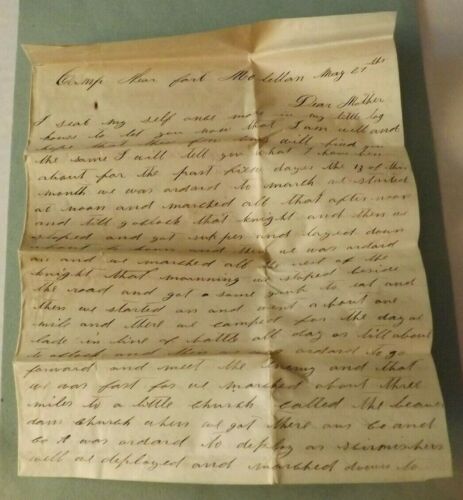 Camp Near fort Mclellan May 27th
Dear Mother
I seat my self once more in my little log
house to let you now that I am well and
hope that these few lines will find you
the same I will tell you what I have ben
about for the past few dayes the 13 of this
month we was ordard to march we started
at noon and marched all that after noon
and till 9 oclock that knight and then we
stoped and got supper and layed down
then we was ordard
and we marched all the rest of the
knight that mornning we stoped beside
the road and got a some to eat and
then we started on and went about one
mile and there we camped for the day
lade in line of battle all day or till about
oclock and then we ordard to go
forward and meet the enemy and that
we was fast for we marched about three
miles to a little church called the beaver
dam church when we got there our co and
co it was ordard to deploy as skirmishers
well we deployed and marched down to